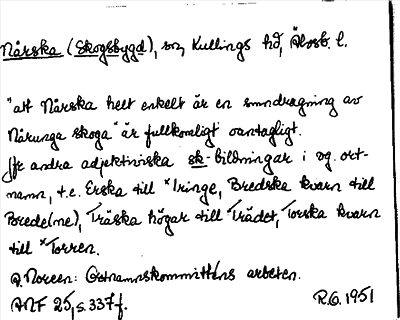 Närska (Skogsbygd), sn, Kullings hd, Älvsb. l.
"att Närska helt enkelt är en smndragning av
Närunga skoga" är fullkomligt oantagligt.
Jfr andra adjektiviska sk-bildningar i vg. ort-
namn, t.e. Erska till *Iringe, Bredska kvarn till
Brede(ne), Träska högar till Trädet, Torska kvarn
till *Torren.
A. Noreen: Ortnamnskommitténs arbeten.
ANF 25, s. 337 f. R.G. 1951